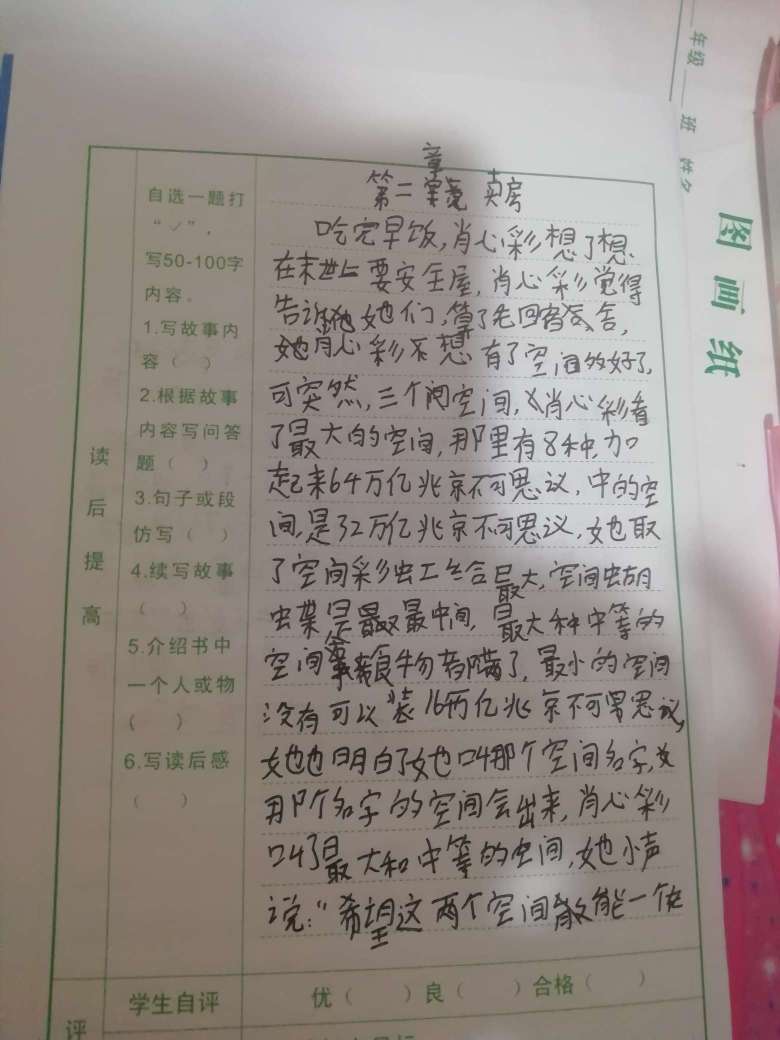 年级 班 姓名
图画纸
读后提高
自选一题打
“✓”，
写50-100字
内容。
1.写故事内
容（ ）
2.根据故事
内容写问答
题（ ）
3.句子或段
仿写（ ）
4.续写故事
（ ）
5.介绍书中
一个人或物
（ ）
6.写读后感
（ ）
第二章 卖房
吃完早饭，肖心彩想了想
在末世上要安全屋，肖心彩觉得
告诉她们，算了先回宿舍，
她肖心彩不想有了空间的好了，
可突然，三个间空间，肖心彩看
了最大的空间，那里有8种，加
起来64万亿兆京不可思议，中的空
间，是32万亿兆京不可思议，她取
了空间彩虫工合最大，空间蝴
蝶是最中间，最大和中等的
空间食物都满了，最小的空间
没有可以装16万亿兆京不可思议，
她也明白了她叫那个空间名字，
那个名字的空间会出来，肖心彩
叫了最大和中等的空间，她小声
说：“希望这两个空间能一个
学生自评 优（ ）良（ ）合格（ ）
评